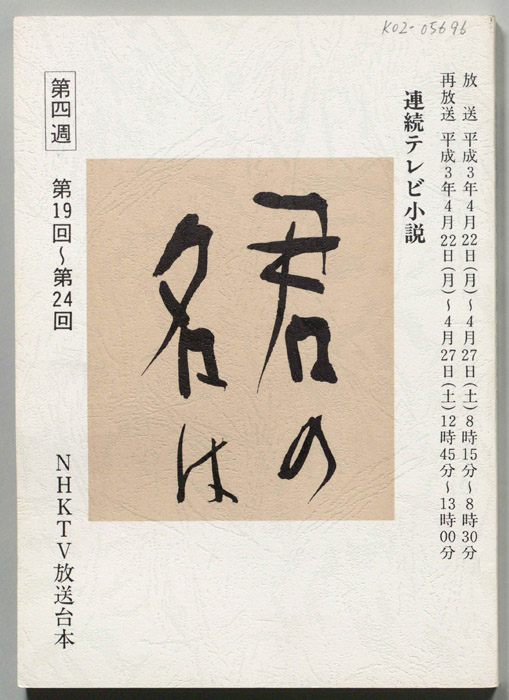 K02-05696
放送 平成3年4月22日(月)～4月27日(土)8時15分～8時30分
再放送 平成3年4月22日(月)～4月27日(土)12時45分～13時00分
連続テレビ小説
君の
名は
第四週
第19回～第24回
NHKTV放送台本